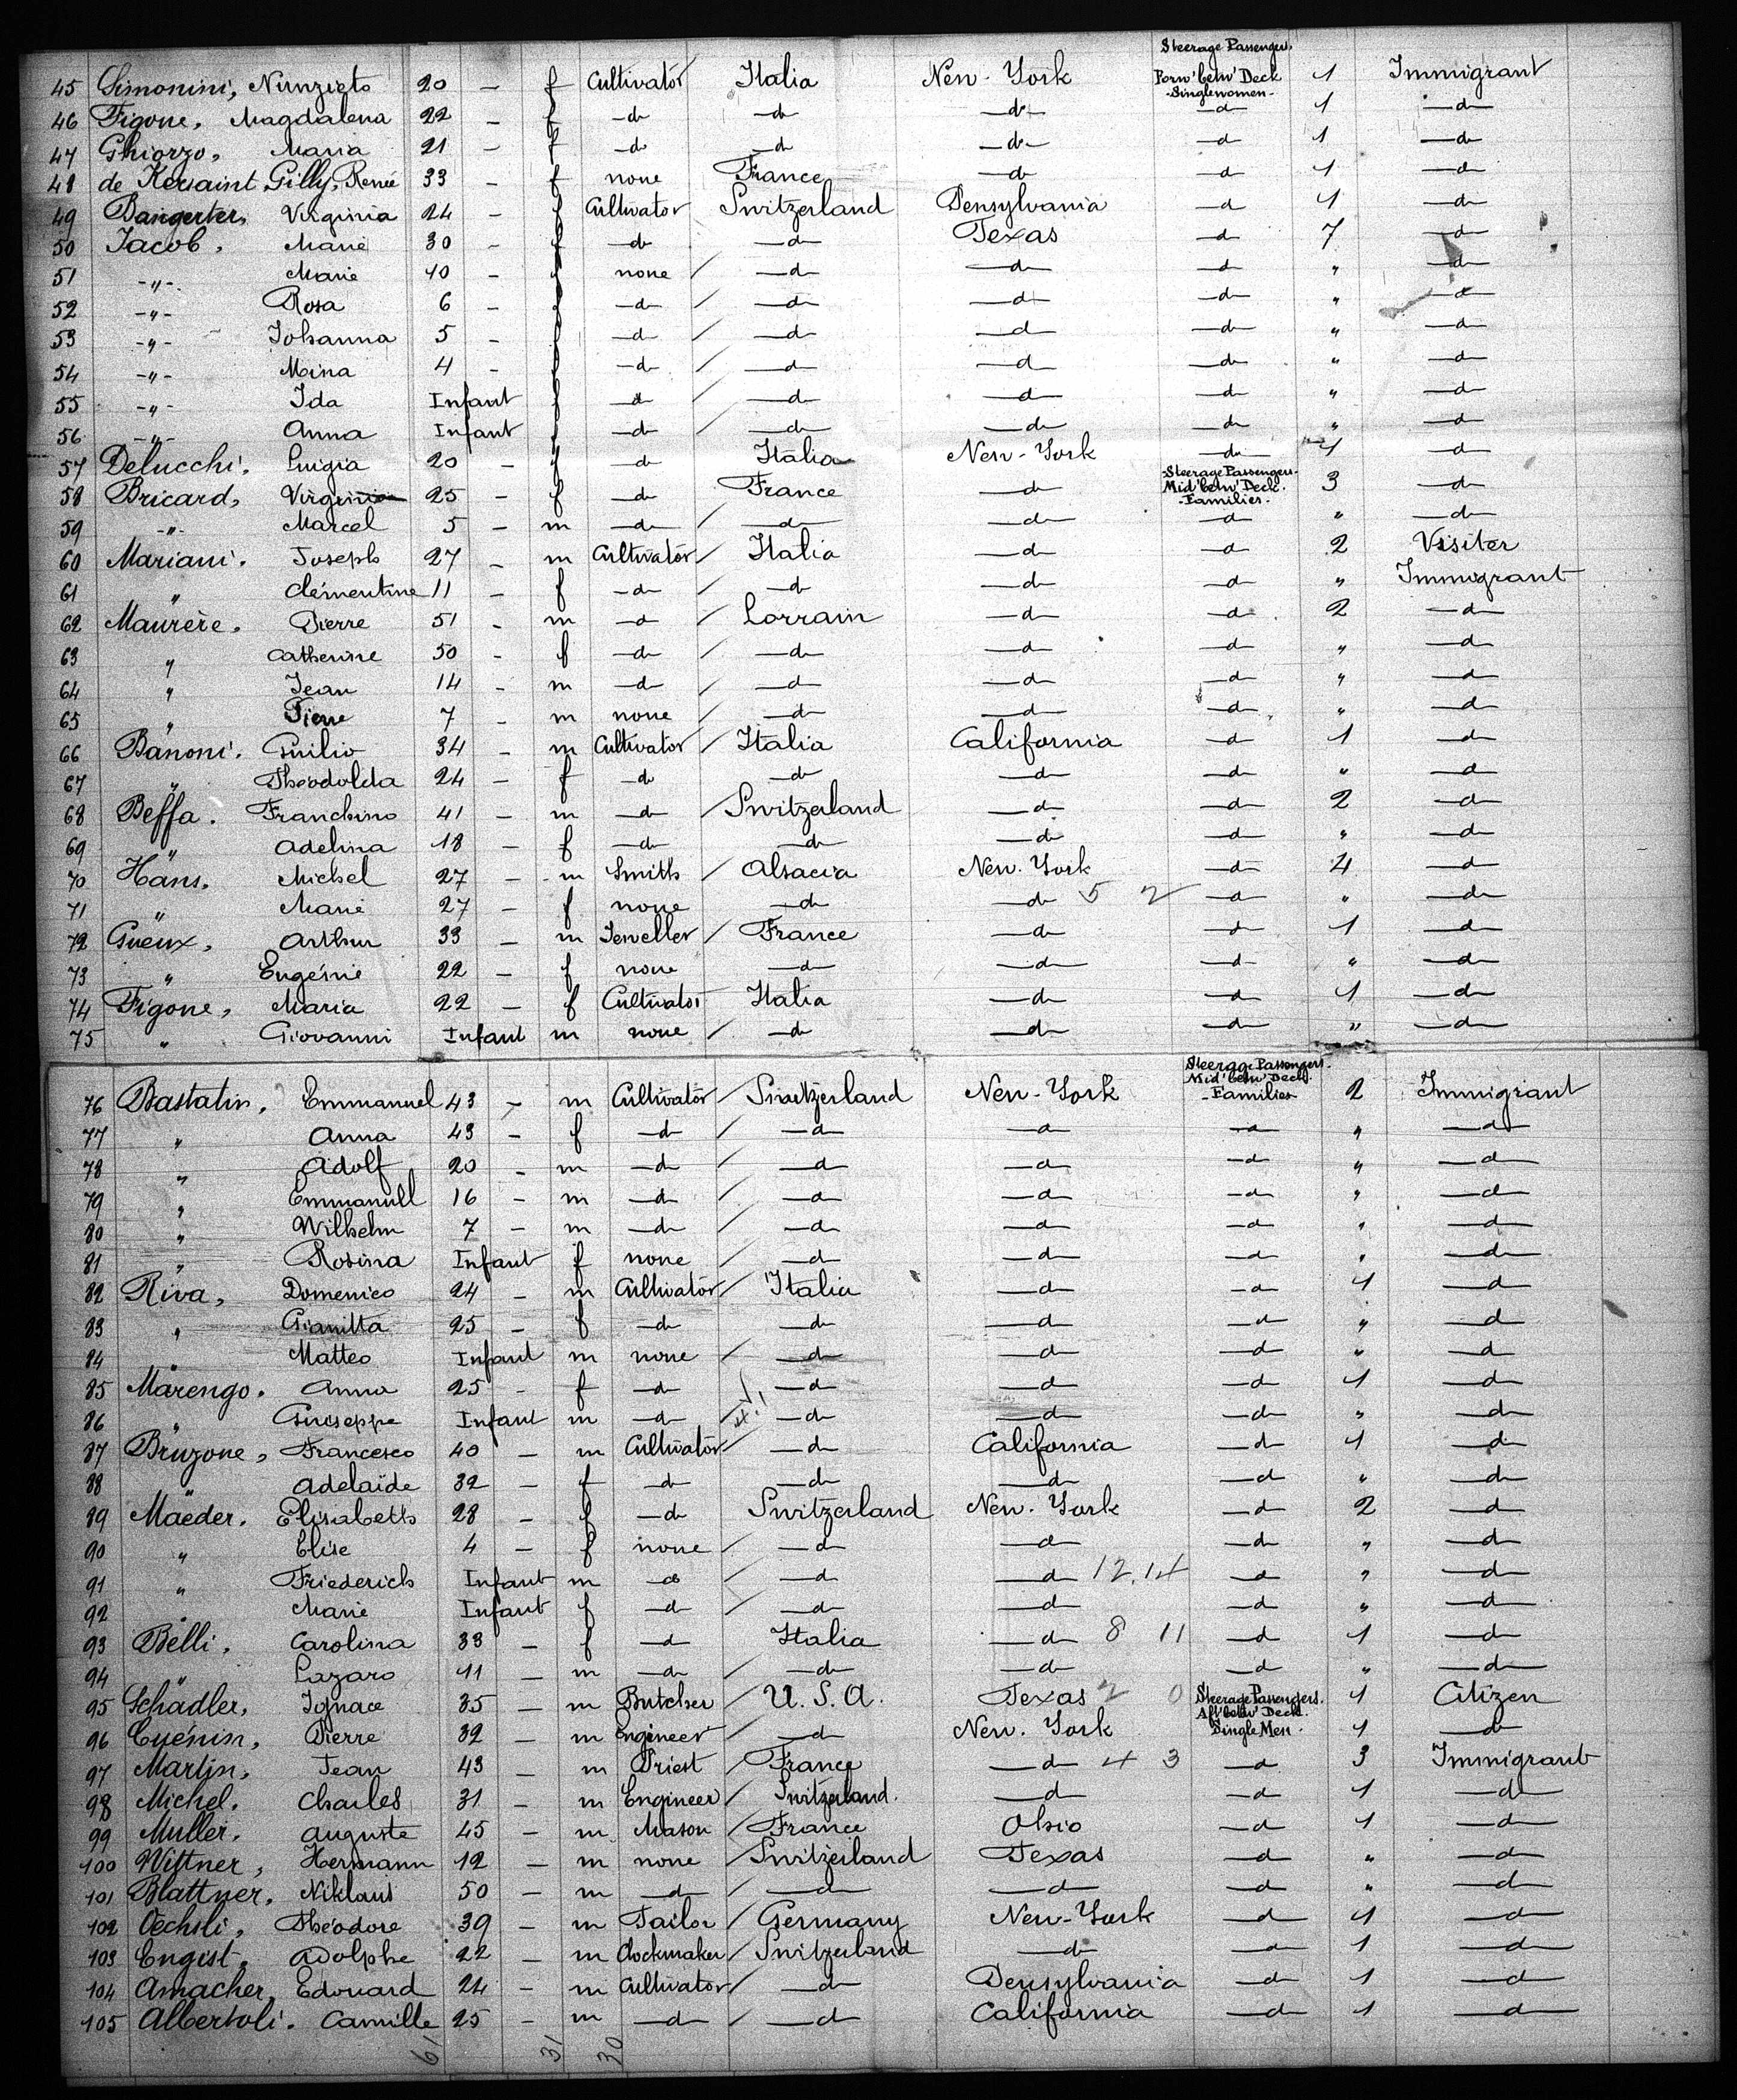 45 Simonini, Nunziato 20 — f Cultivator Italia New-York Steerage Passengers. Forw' betw' Deck -Singlewomen- 1 Immigrant
46 Figone, Magdalena 22 — f —d— —d— —d— —d— 1 —d—
47 Ghiorzo, Maria 21 — f —d— —d— —d— —d— 1 —d—
48 de Kersaint Gilly, Renée 33 — f none France —d— —d— 1 —d—
49 Bangerter, Virginia 24 — f Cultivator Switzerland Pensylvania —d— 1 —d—
50 Jacob, Marie 30 — f —d— —d— Texas —d— 7 —d—
51 -"- Marie 10 — f none / —d— —d— —d— " —d—
52 -"- Rosa 6 — f —d— / —d— —d— —d— " —d—
53 -"- Johanna 5 — f —d— / —d— —d— —d— " —d—
54 -"- Mina 4 — f —d— / —d— —d— —d— " —d—
55 -"- Ida Infant f —d— / —d— —d— —d— " —d—
56 -"- Anna Infant f —d— / —d— —d— —d— " —d—
57 Delucchi, Luigia 20 — f —d— Italia New-York —d— 1 —d—
58 Bricard, Virginie 25 — f —d— France —d— -Steerage Passengers- Mid' betw' Deck. -Families- 3 —d—
59 -"- Marcel 5 — m —d— / —d— —d— —d— " —d—
60 Mariani. Joseph 27 — m Cultivator / Italia —d— —d— 2 Visiter
61 " Clémentine 11 — f —d— —d— —d— —d— " Immigrant
62 Maurère. Pierre 51 — m —d— / Lorrain —d— —d— 2 —d—
63 " Catherine 50 — f —d— / —d— —d— —d— " —d—
64 " Jean 14 — m —d— / —d— —d— —d— " —d—
65 " Pierre 7 — m none / —d— —d— —d— " —d—
66 Banoni. Guilio 34 — m Cultivator / Italia California —d— 1 —d—
67 " Théodolda 24 — f —d— —d— —d— —d— " —d—
68 Beffa. Franchino 41 — m —d— / Switzerland —d— —d— 2 —d—
69 " Adelina 18 — f —d— —d— —d— —d— " —d—
70 Hans. Michel 27 — m Smith / Alsacia New-York —d— 4 —d—
71 " Marie 27 — f none —d— —d— 5 2 —d— " —d—
72 Gueux, Arthur 33 — m Jeweller / France —d— —d— 1 —d—
73 " Eugénie 22 — f none —d— —d— —d— " —d—
74 Figone, Maria 22 — f Cultivator Italia —d— —d— 1 —d—
75 " Giovanni Infant m none / —d— —d— —d— " —d—
76 Bastatin, Emmanuel 43 — m Cultivator / Switzerland New-York Steerage Passengers. Mid' betw' Deck. -Families- 2 Immigrant
77 " Anna 43 — f —d— / —d— —d— —d— " —d—
78 " Adolf 20 — m —d— / —d— —d— —d— " —d—
79 " Emmanuel 16 — m —d— / —d— —d— —d— " —d—
80 " Wilhelm 7 — m —d— / —d— —d— —d— " —d—
81 " Rosina Infant f none / —d— —d— —d— " —d—
82 Riva, Domenico 24 — m Cultivator / Italia —d— —d— 1 —d—
83 " Gianitta 25 — f —d— —d— —d— —d— " —d—
84 " Matteo Infant m none / —d— —d— —d— " —d—
85 Marengo. Anna 25 — f —d— —d— —d— —d— 1 —d—
86 " Guiseppe Infant m —d— —d— —d— —d— " —d—
87 Bruzone, Francesco 40 — m Cultivator / —d— California —d— 1 —d—
88 " Adelaïde 32 — f —d— —d— —d— —d— " —d—
89 Maeder. Elisabeth 28 — f —d— Switzerland New-York —d— 2 —d—
90 " Elise 4 — f none / —d— —d— —d— " —d—
91 " Friederich Infant m —d— / —d— —d— 12.14 —d— " —d—
92 " Marie Infant f —d— / —d— —d— —d— " —d—
93 Belli, Carolina 33 — f —d— Italia —d— 8 11 —d— 1 —d—
94 " Lazaro 11 — m —d— / —d— —d— —d— " —d—
95 Schädler, Ignace 35 — m Butcher / U.S.A. Texas 2 0 Steerage Passengers. Aft' betw' Deck. Single Men. 1 Citizen
96 Cuénin, Pierre 32 — m Engineer —d— New-York 1 —d—
97 Martin, Jean 43 — m Priest / France —d— 4 3 —d— 3 Immigrant
98 Michel. Charles 31 — m Engineer / Switzerland. —d— —d— 1 —d—
99 Muller. Auguste 45 — m Mason / France Ohio —d— 1 —d—
100 Wittner, Hermann 12 — m none / Switzerland Texas —d— " —d—
101 Blattner. Niklaus 50 — m —d— / —d— —d— —d— " —d—
102 Oechsli, Théodore 39 — m Tailor / Germany New-York —d— 1 —d—
103 Engist. Adolphe 22 — m Clockmaker / Switzerland —d— —d— 1 —d—
104 Amacher, Edouard 24 — m Cultivator / —d— Pensylvania —d— 1 —d—
105 Albertoli. Camille 25 — m —d— / —d— California —d— 1 —d—
61 31 30